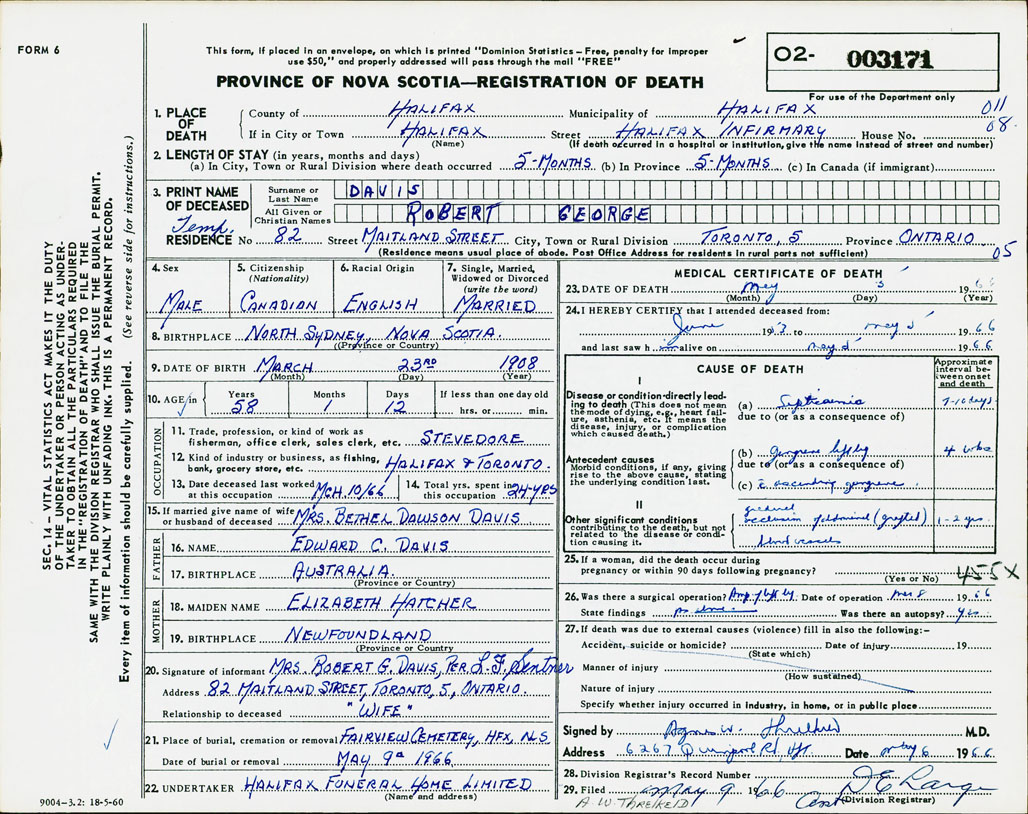 FORM 6
This form, if placed in an envelope, on which is printed "Dominion Statistics – Free, penalty for improper
use $50," and properly addressed will pass through the mail "FREE"
PROVINCE OF NOVA SCOTIA—REGISTRATION OF DEATH
02- 003171
For use of the Department only
011
08.
1. PLACE OF DEATH
County of HALIFAX Municipality of HALIFAX
If in City or Town HALIFAX Street HALIFAX INFIRMARY House No.
(Name) (If death occurred in a hospital or institution, give the name instead of street and number)
2. LENGTH OF STAY (in years, months and days)
(a) In City, Town or Rural Division where death occurred 5-MONTHS (b) In Province 5-MONTHS (c) In Canada (if immigrant)
3. PRINT NAME OF DECEASED
Surname or Last Name DAVIS
All Given or Christian Names ROBERT GEORGE
Temp.
RESIDENCE No 82 Street MAITLAND STREET City, Town or Rural Division TORONTO, 5 Province ONTARIO
(Residence means usual place of abode. Post Office Address for residents in rural parts not sufficient)
05
4. Sex MALE
5. Citizenship (Nationality) CANADIAN
6. Racial Origin ENGLISH
7. Single, Married, Widowed or Divorced (write the word) MARRIED
8. BIRTHPLACE NORTH SYDNEY, NOVA SCOTIA.
(Province or Country)
9. DATE OF BIRTH MARCH 23RD 1908
(Month) (Day) (Year)
10. AGE in Years 58 Months 1 Days 12 If less than one day old hrs. or min.
OCCUPATION
11. Trade, profession, or kind of work as fisherman, office clerk, sales clerk, etc. STEVEDORE
12. Kind of industry or business, as fishing, bank, grocery store, etc. HALIFAX & TORONTO.
13. Date deceased last worked at this occupation MCH. 10/66
14. Total yrs. spent in this occupation 24-YRS
15. If married give name of wife or husband of deceased MRS. BETHEL DAWSON DAVIS
FATHER
16. NAME EDWARD C. DAVIS
17. BIRTHPLACE AUSTRALIA.
(Province or Country)
MOTHER
18. MAIDEN NAME ELIZABETH HATCHER
19. BIRTHPLACE NEWFOUNDLAND
(Province or Country)
20. Signature of informant MRS. ROBERT G. DAVIS, PER L. F. Sentner
Address 82 MAITLAND STREET, TORONTO, 5, ONTARIO.
Relationship to deceased "WIFE"
21. Place of burial, cremation or removal FAIRVIEW CEMETERY, HFX, N.S
Date of burial or removal MAY 9th 1966
22. UNDERTAKER HALIFAX FUNERAL HOME LIMITED
(Name and address)
MEDICAL CERTIFICATE OF DEATH
23. DATE OF DEATH May 5 1966
(Month) (Day) (Year)
24. I HEREBY CERTIFY that I attended deceased from:
June 19 to May 5 1966
and last saw h alive on May 5 1966
CAUSE OF DEATH
Approximate interval between onset and death
I
Disease or condition directly leading to death (This does not mean the mode of dying, e.g., heart failure, asthenia, etc. It means the disease, injury, or complication which caused death.)
(a) Septicaemia 7-10 days
due to (or as a consequence of)
Antecedent causes
Morbid conditions, if any, giving rise to the above cause, stating the underlying condition last.
(b) gangrene left leg 4 wks
due to (or as a consequence of)
(c) c ascending gangrene
II
Other significant conditions contributing to the death, but not related to the disease or condition causing it.
gradual
occlusion abdominal (grafted) 1-2 yrs.
blood vessels
25. If a woman, did the death occur during pregnancy or within 90 days following pregnancy?
(Yes or No)
455X
26. Was there a surgical operation? Amp. of left leg Date of operation 8 1966
State findings Was there an autopsy? yes
27. If death was due to external causes (violence) fill in also the following:–
Accident, suicide or homicide? Date of injury 19
(State which)
Manner of injury
(How sustained)
Nature of injury
Specify whether injury occurred in industry, in home, or in public place
Signed by Agnes W. Threlkeld M.D.
Address 6267 Quinpool Rd, Hfx Date May 6 1966
28. Division Registrar's Record Number
29. Filed May 9 1966 D E Large
(Division Registrar)
A. W. THRELKELD
SEC. 14 – VITAL STATISTICS ACT MAKES IT THE DUTY
OF THE UNDERTAKER OR PERSON ACTING AS UNDER-
TAKER TO OBTAIN ALL THE PARTICULARS REQUIRED
IN THE "REGISTRATION OF DEATH" AND TO FILE THE
SAME WITH THE DIVISION REGISTRAR WHO SHALL ISSUE THE BURIAL PERMIT.
WRITE PLAINLY WITH UNFADING INK. THIS IS A PERMANENT RECORD.
Every item of information should be carefully supplied. (See reverse side for instructions.)
9004-3.2: 18-5-60